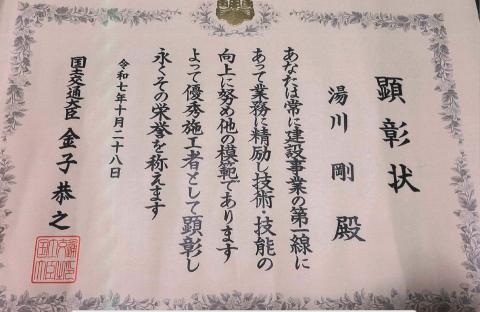 顕彰状
湯川 剛 殿
あなたは常に建設事業の第一線に
あって業務に精励し技術・技能の
向上に努め他の模範であります
よって優秀施工者として顕彰し
永くその栄誉を称えます
令和七年十月二十八日
国土交通大臣 金子 恭之
国土交通大臣之印